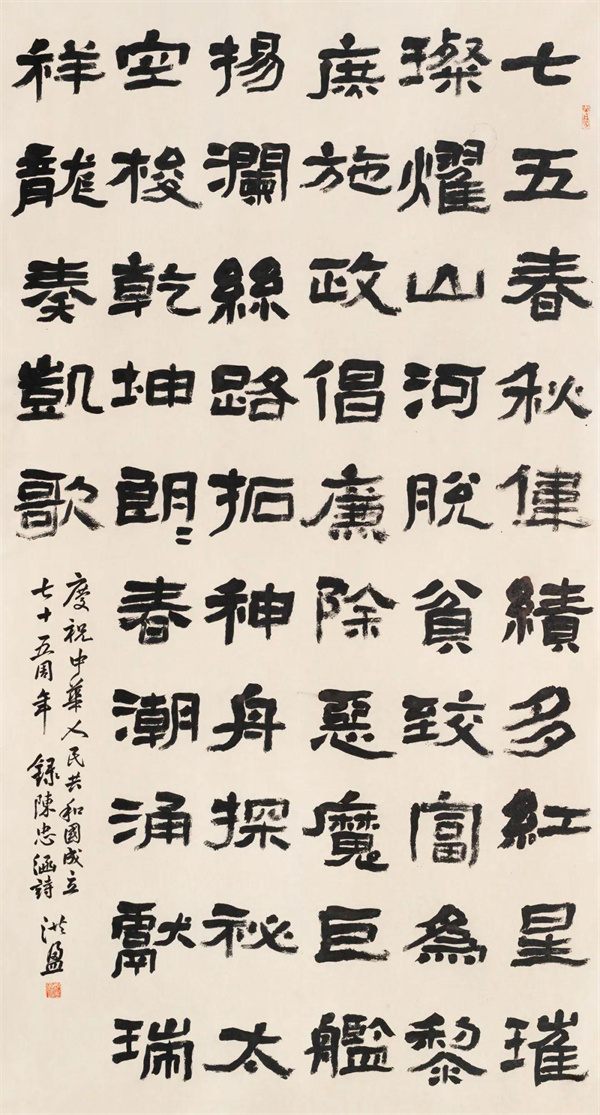 七五春秋偉績多紅星璀
璨燿山河脫貧致富為黎
庶施政倡廉除惡魔巨艦
揚瀾絲路拓神舟探祕太
空梭乾坤朗〻春潮涌獻瑞
祥龍奏凱歌
慶祝中華人民共和國成立
七十五周年 錄陳忠涵詩 洪盈